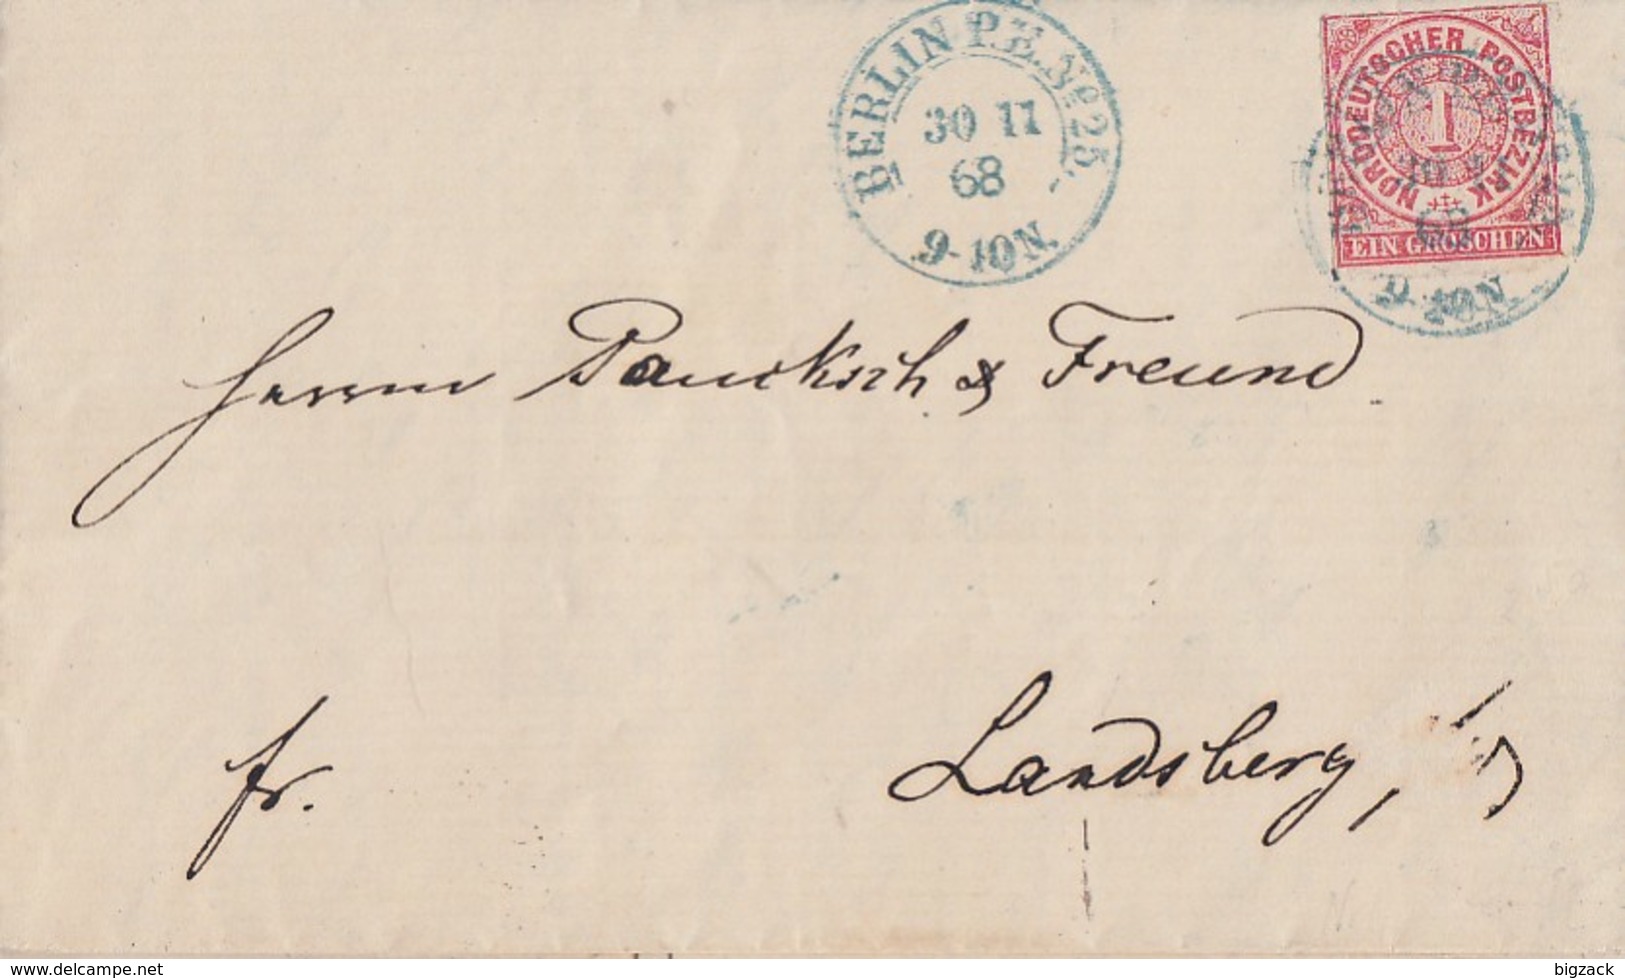 BERLIN P.E. No 25.
30 11
68
9-10N.
NORDDEUTSCHER POSTBEZIRK
1
EIN GROSCHEN
68
10N.
Herren Paucksch & Freund
fr. Landsberg,
www.delcampe.net
bigzack